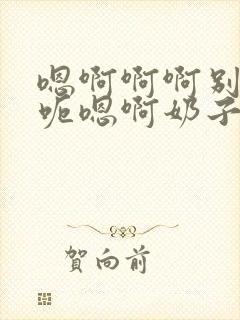 嗯啊啊啊别
呃嗯啊奶子
贺向前